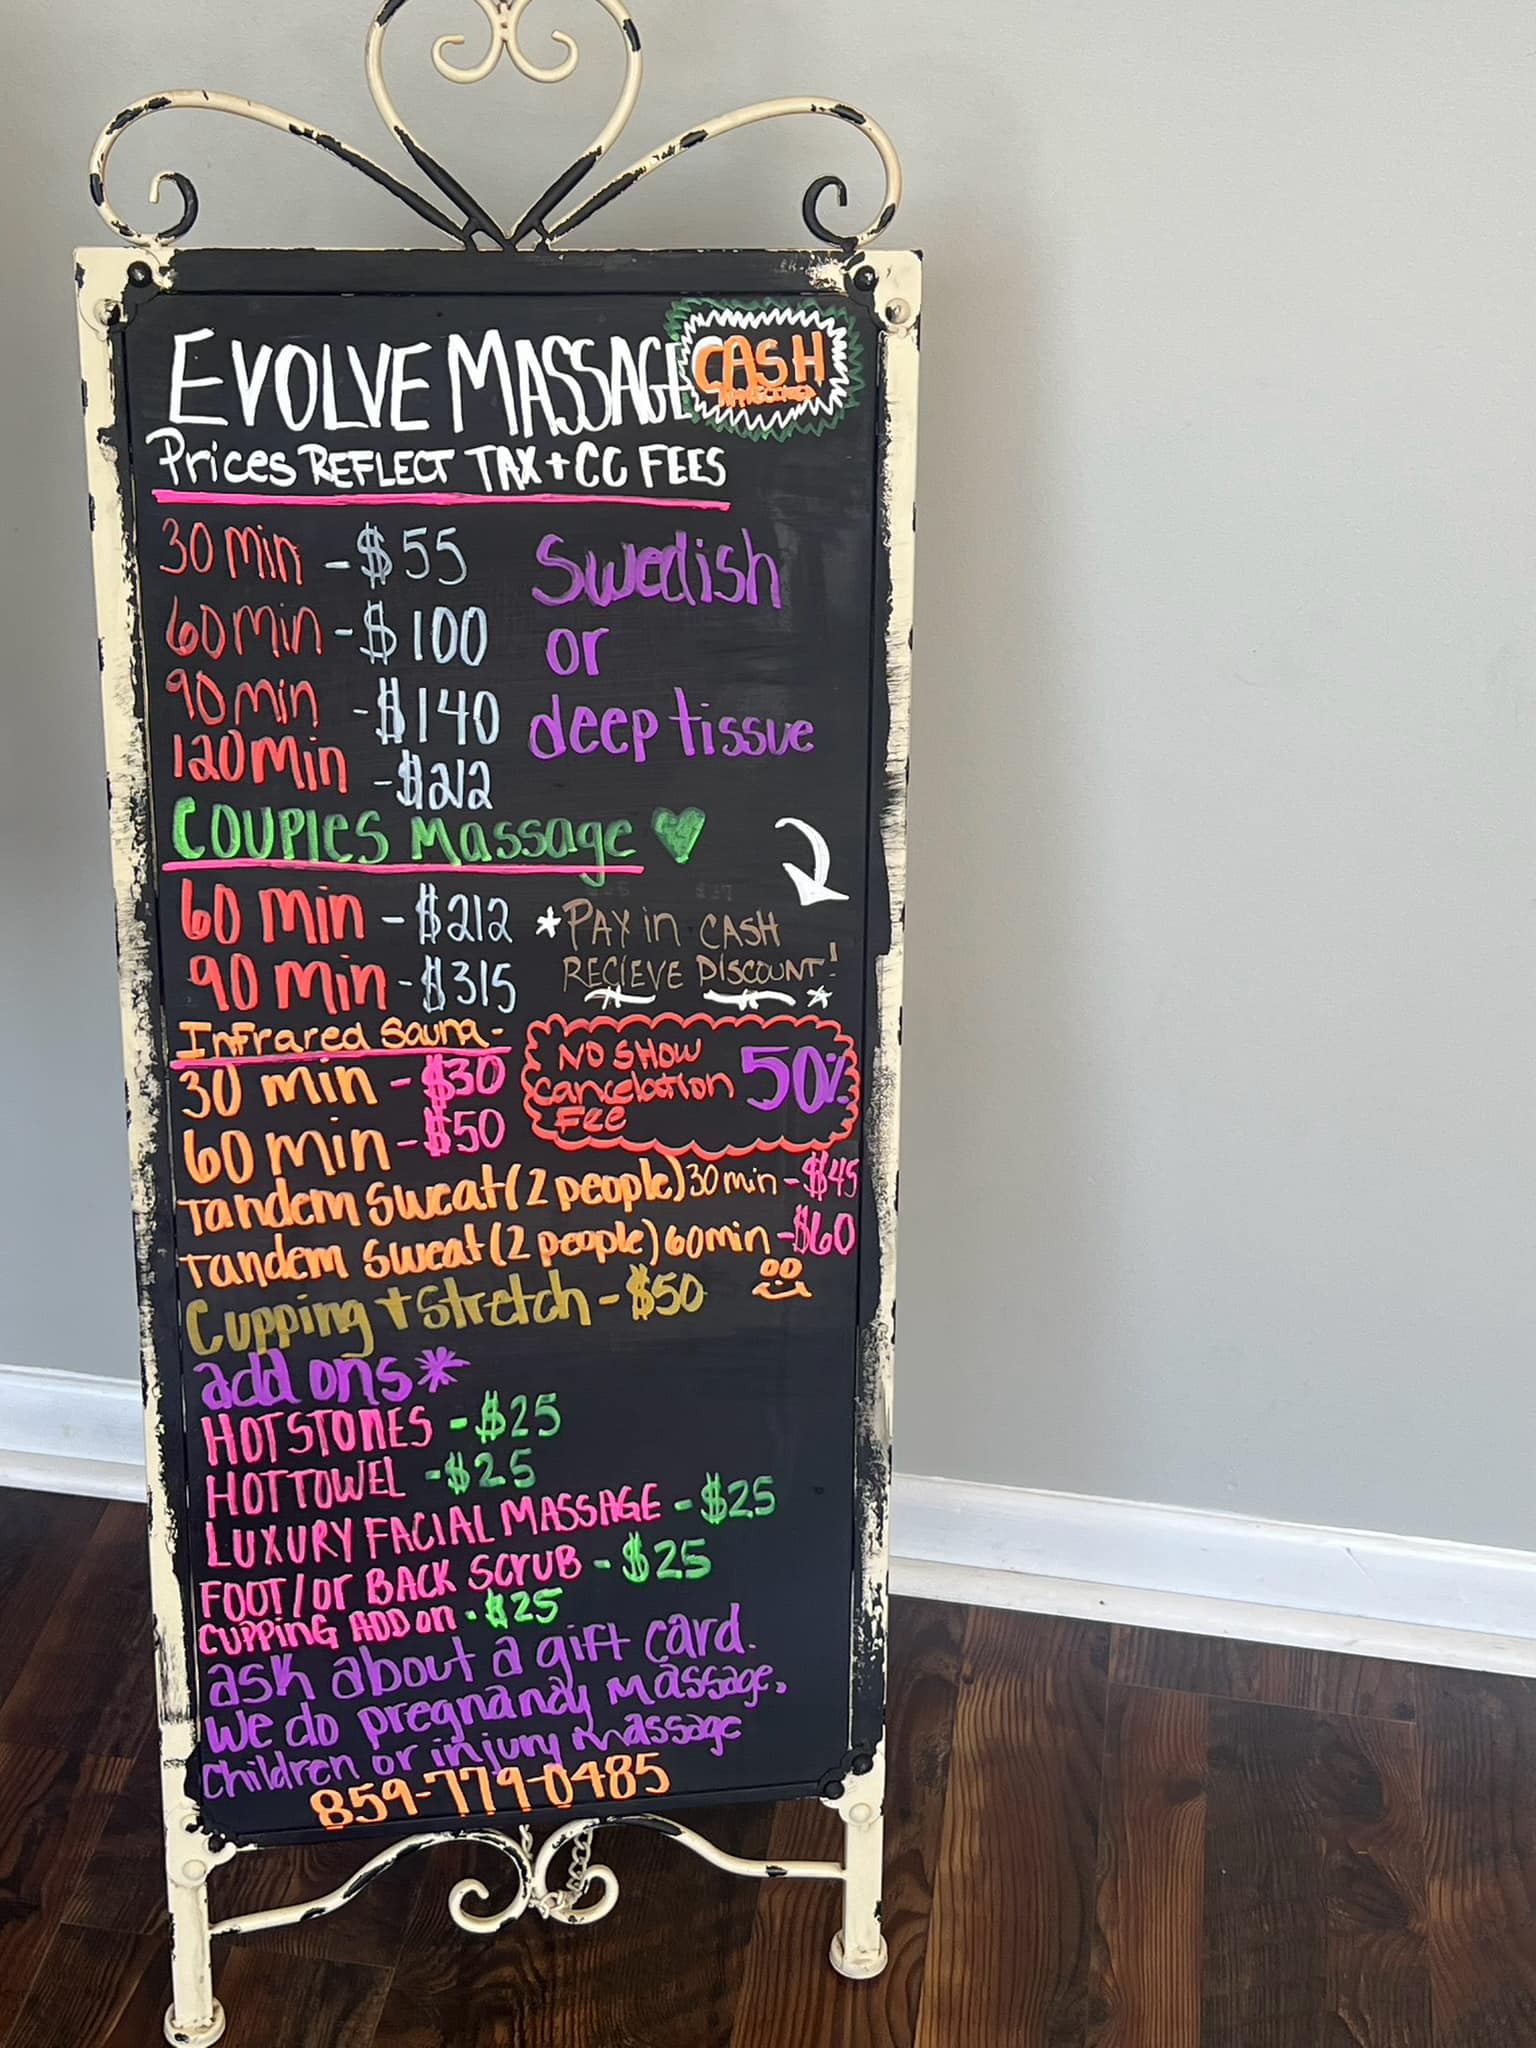 EVOLVE MASSAGE
CASH
APPRECIATED
Prices REFLECT TAX + CC FEES
30 min - $55
60 min - $100
90 min - $140
120 min - $212
Swedish
or
deep tissue
Couples Massage
60 min - $212
90 min - $315
*PAY in CASH
RECIEVE DISCOUNT!
Infrared Sauna -
30 min - $30
60 min - $50
NO SHOW
Cancelation
Fee
50%
Tandem Sweat (2 people) 30 min - $45
Tandem Sweat (2 people) 60 min - $60
Cupping + Stretch - $50
add ons*
HOT STONES - $25
HOT TOWEL - $25
LUXURY FACIAL MASSAGE - $25
FOOT/or BACK SCRUB - $25
CUPPING ADD on - $25
ask about a gift card.
We do pregnancy Massage,
Children or injury Massage
859-779-0485